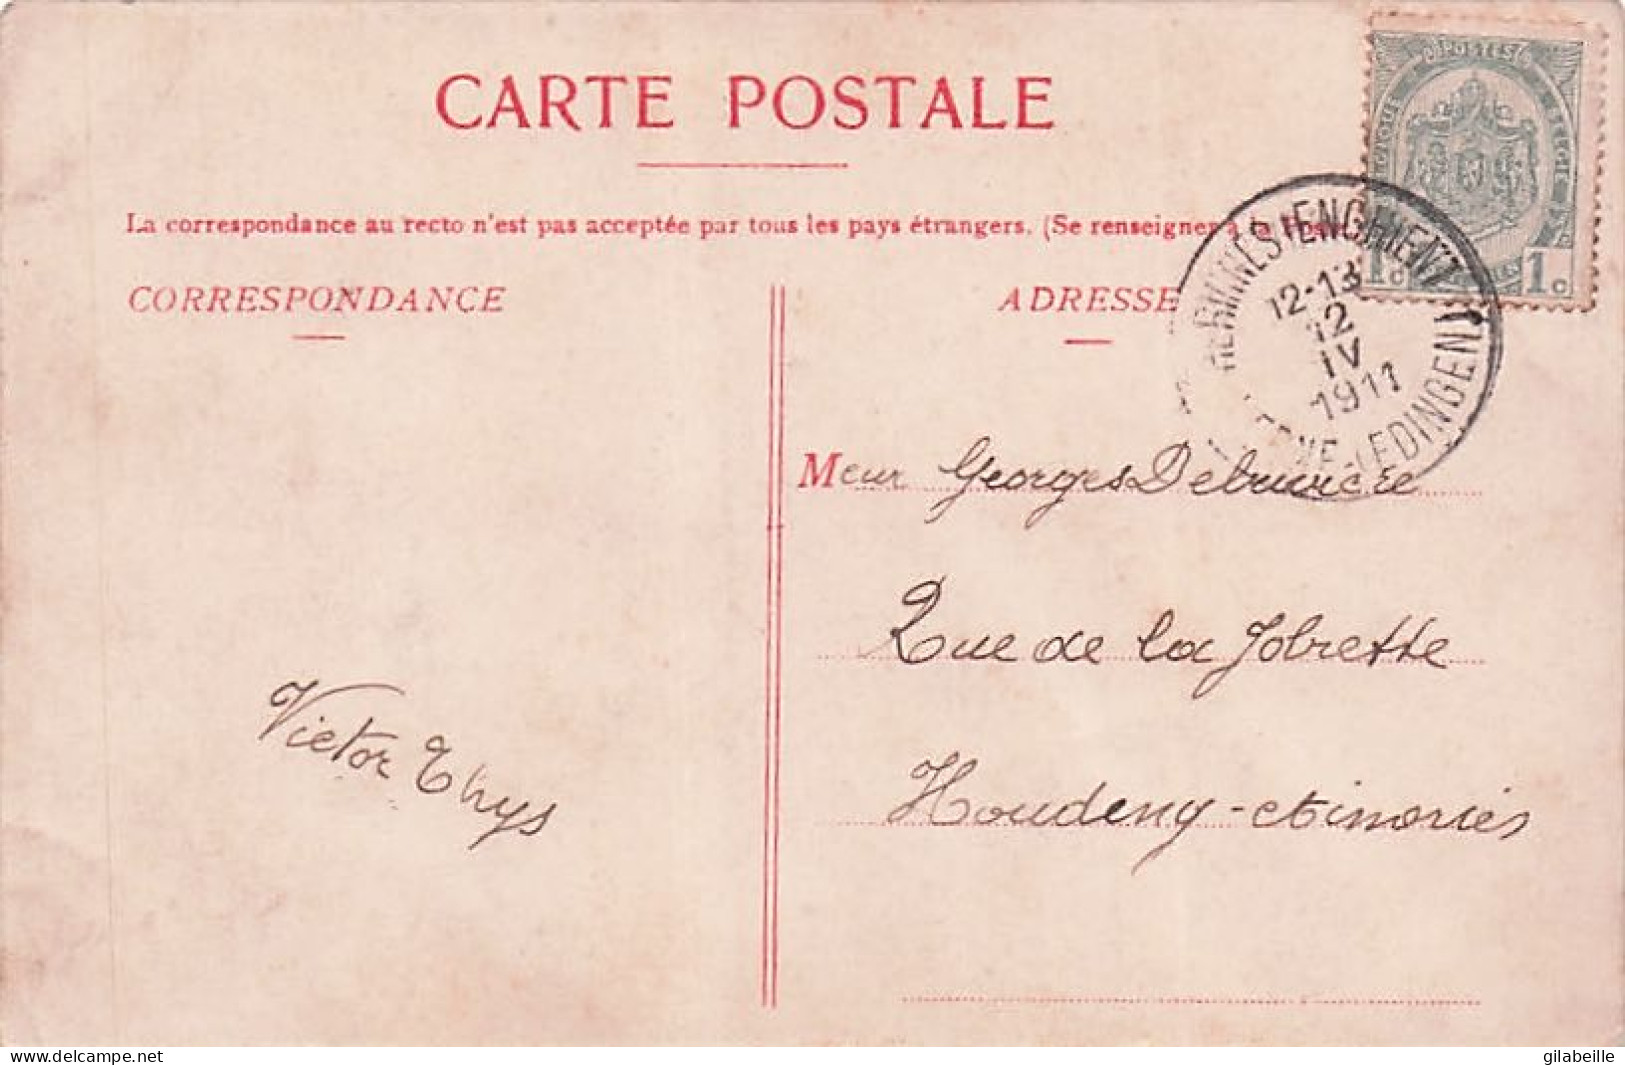 CARTE POSTALE
La correspondance au recto n'est pas acceptée par tous les pays étrangers. (Se renseigner à la
CORRESPONDANCE
ADRESSE
POSTES
BELGIE
1c 1c
HÉRINNES (ENGHIEN)
12-13
12
IV
1911
(EDINGEN)
Meur Georges Debruvière
Rue de la Jobrette
Houdeng-
Victor Thys
www.delcampe.net
gilabeille